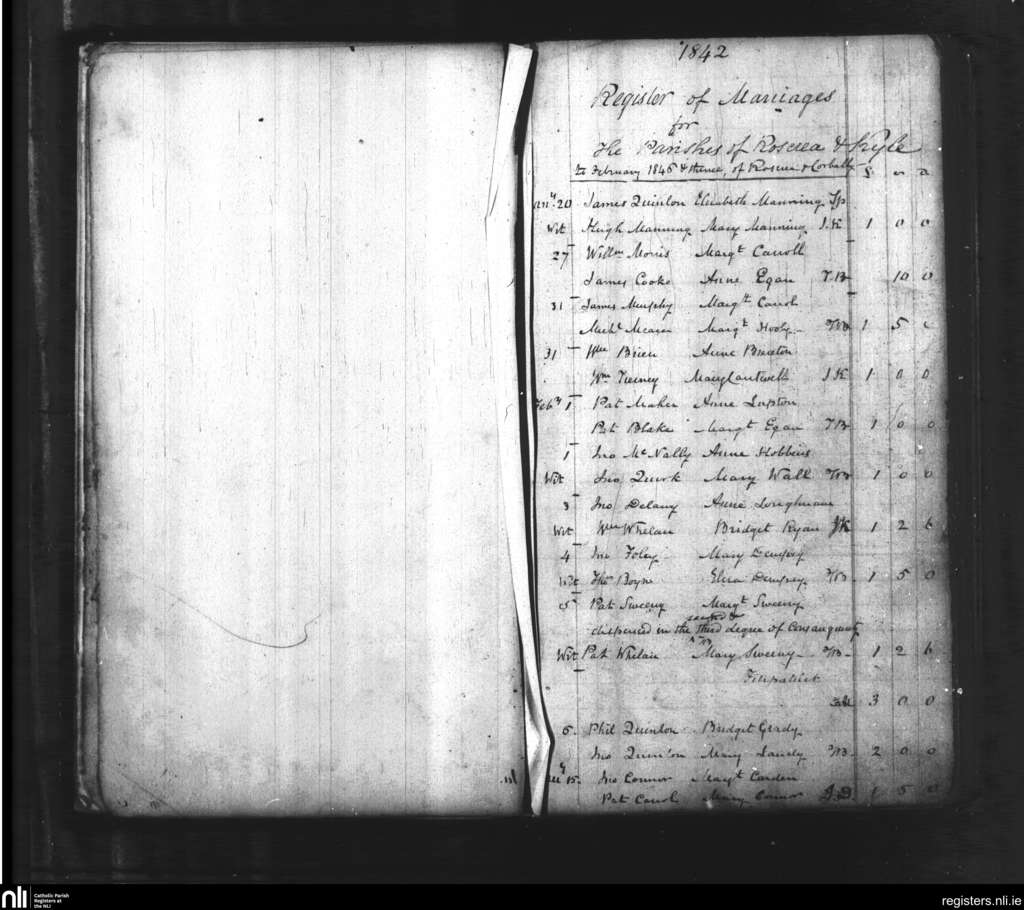 1842
Register of Marriages
for
The Parishes of Roscrea & Kyle
to February 1846 & thence, of Roscrea & Corbally
£ s d
Jany. 20 James Quinlon Elizabeth Manning
Wit Hugh Manning Mary Manning J.K 1 0 0
27 Willm Morris Margt Carroll
James Cooke Anne Egan T.B 10 0
31 James Murphy Margt Carrol
Michl Meara Margt 1 5
31 Wm Brien Anne
Wm Tierney Mary Cantwell J K 1 0 0
Feby 1 Pat Maher Anne Lupton
Pat Blake Margt Egan T.B 1 0 0
1 Jno McNally Anne Hobbins
Wit Jno Quirk Mary Wall 1 0 0
3 Jno Delany Anne Loughnane
Wit Wm Whelan Bridget Ryan JK 1 2 6
4 Jno Foley Mary Dempsy
Wit Thos Boyne Eliza Dempsey 1 5 0
5 Pat Sweeny Margt Sweeny
second &
dispensed in the third degree of Consanguinity
Wit Pat Whelan Mary Sweeny 1 2 6
Fitzpatrick
3 0 0
6 Phil Quinlon Bridget Grady
Jno Quinlon Mary 2 0 0
15. Jno Connor Margt Carden
Pat Carrol Mary Connor J.D. 1 5 0
nli
Catholic Parish
Registers at
the NLI
registers.nli.ie